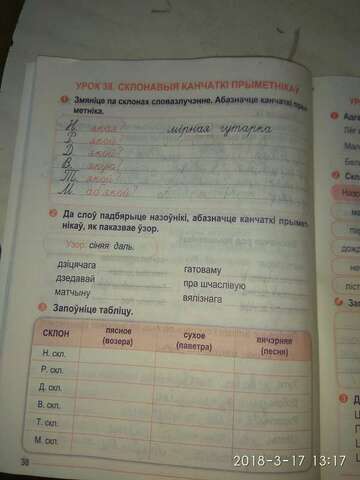 УРОК 38. СКЛОНАВЫЯ КАНЧАТКІ ПРЫМЕТНІКАЎ
1 Змяніце па склонах словазлучэнне. Абазначце канчаткі прыметніка.
Н. якая? мірная гутарка
Р. якой?
Д. якой?
В. якую?
Т. якой?
М. аб якой?
2 Да слоў падбярыце назоўнікі, абазначце канчаткі прымет-
нікаў, як паказвае ўзор.
Узор: сіняя даль.
дзіцячага гатоваму
дзедавай пра шчаслівую
матчыну вялізнага
3 Запоўніце табліцу.
СКЛОН лясное (возера) сухое (паветра) вячэрняя (песня)
Н. скл.
Р. скл.
Д. скл.
В. скл.
Т. скл.
М. скл.
38
2018-3-17 13:17